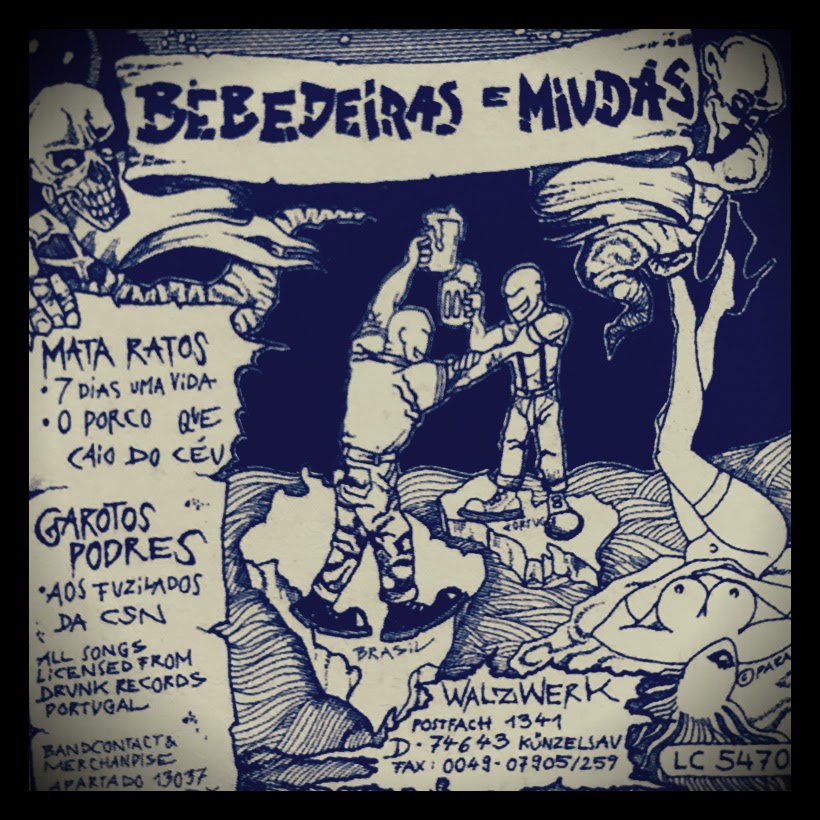 BEBEDEIRAS E MIUDAS
MATA RATOS
• 7 DIAS UMA VIDA
• O PORCO QUE
CAIO DO CÉU
GAROTOS
PODRES
• AOS FUZILADOS
DA CSN
ALL SONGS
LICENSED FROM
DRUNK RECORDS
PORTUGAL
BANDCONTACT &
MERCHANDISE
APARTADO 13037
PORTUG
BRASIL
WALZWERK
POSTFACH 1341
D-74643 KÜNZELSAU
FAX: 0049-07905/259
© PARA
LC 5470